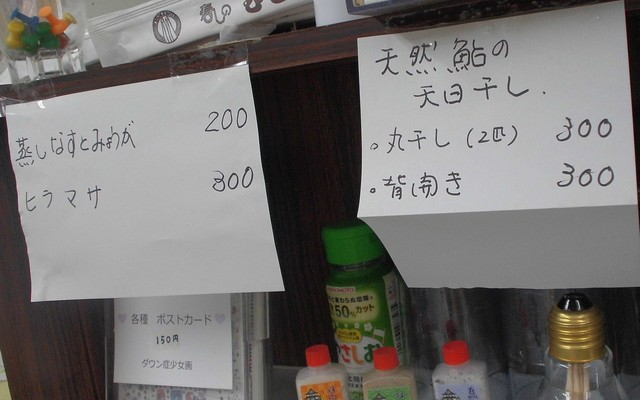 蒸しなすとみょうが 200
ヒラマサ 300
天然鮎の
天日干し.
。丸干し(2匹) 300
。背開き 300
各種 ポストカード
150円
ダウン症少女画
50%カット
さしお